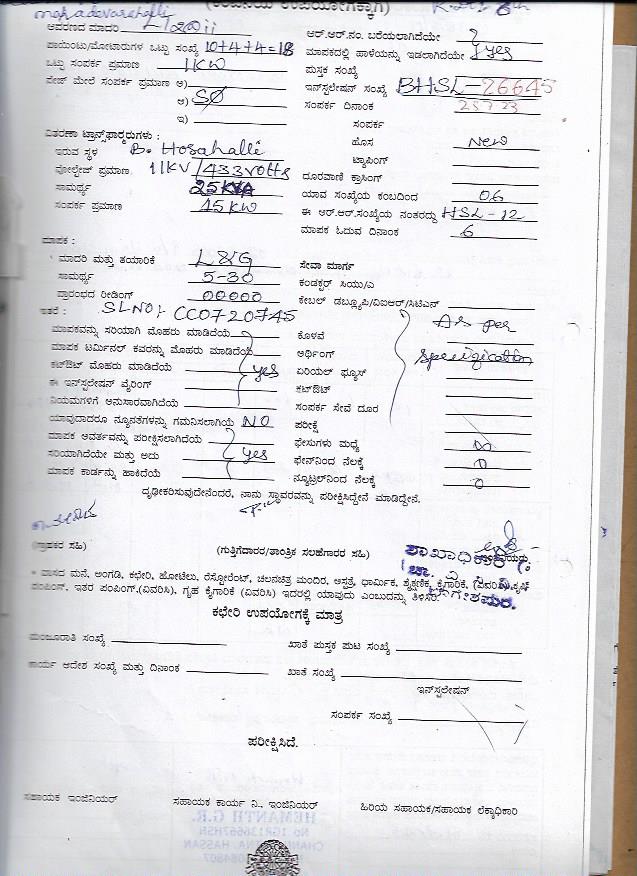 mahadevarahalli
(ಕಛೇರಿಯ ಉಪಯೋಗಕ್ಕಾಗಿ)
ಆವರಣದ ಮಾದರಿ
ಆರ್.ಆರ್.ನಂ. ಬರೆಯಲಾಗಿದೆಯೇ
ಪಾಯಿಂಟು/ಮೋಟಾರುಗಳ ಒಟ್ಟು ಸಂಖ್ಯೆ 10+4+4=18
ಮಾಪಕದಲ್ಲಿ ಹಾಳೆಯನ್ನು ಇಡಲಾಗಿದೆಯೇ yes
ಒಟ್ಟು ಸಂಪರ್ಕ ಪ್ರಮಾಣ 1KW
ಪುಸ್ತಕ ಸಂಖ್ಯೆ
ಪೇಜ್ ಮೇಲೆ ಸಂಪರ್ಕ ಪ್ರಮಾಣ ಅ)
ಇನ್‌ಸ್ಟಲೇಷನ್ ಸಂಖ್ಯೆ BHSL-26645
ಆ) SØ
ಸಂಪರ್ಕ ದಿನಾಂಕ
ಇ)
ಸಂಪರ್ಕ
ವಿತರಣಾ ಟ್ರಾನ್ಸ್‌ಫಾರ್ಮರುಗಳು :
ಹೊಸ New
ಇರುವ ಸ್ಥಳ B. Hosahalli
ಟ್ಯಾಪಿಂಗ್
ವೋಲ್ಟೇಜ್ ಪ್ರಮಾಣ 11KV/433volts
ದೂರವಾಣಿ ಕ್ರಾಸಿಂಗ್
ಸಾಮರ್ಥ್ಯ 25KVA
ಯಾವ ಸಂಖ್ಯೆಯ ಕಂಬದಿಂದ 06
ಸಂಪರ್ಕ ಪ್ರಮಾಣ 15KW
ಈ ಆರ್.ಆರ್.ಸಂಖ್ಯೆಯ ನಂತರದ್ದು HSL-12
ಮಾಪಕ ಓದುವ ದಿನಾಂಕ 6
ಮಾಪಕ :
ಮಾದರಿ ಮತ್ತು ತಯಾರಿಕೆ L&G
ಸೇವಾ ಮಾರ್ಗ
ಸಾಮರ್ಥ್ಯ 5-30
ಕಂಡಕ್ಟರ್ ಸಿಯು/ಎ
ಪ್ರಾರಂಭದ ರೀಡಿಂಗ್ 00000
ಕೇಬಲ್ ಡಬ್ಲ್ಯೂಪಿ/ವಿಐಆರ್/ಸಿಟಿಎಸ್
ಇತರೆ : SLNO:- CC0720745
As per
ಮಾಪಕವನ್ನು ಸರಿಯಾಗಿ ಮೊಹರು ಮಾಡಿದೆಯೆ
ಕೊಳವೆ
ಮಾಪಕ ಟರ್ಮಿನಲ್ ಕವರನ್ನು ಮೊಹರು ಮಾಡಿದೆಯೆ
ಆರ್ಥಿಂಗ್ specification
ಕಟ್‌ಔಟ್ ಮೊಹರು ಮಾಡಿದೆಯೆ yes
ಏರಿಯಲ್ ಫ್ಯೂಸ್
ಈ ಇನ್‌ಸ್ಟಲೇಷನ್ ವೈರಿಂಗ್
ಕಟ್‌ಔಟ್
ನಿಯಮಗಳಿಗೆ ಅನುಸಾರವಾಗಿದೆಯೆ
ಸಂಪರ್ಕ ಸೇವೆ ದೂರ
ಯಾವುದಾದರೂ ನ್ಯೂನತೆಗಳನ್ನು ಗಮನಿಸಲಾಗಿಯೆ NO
ಪರೀಕ್ಷೆ
ಮಾಪಕ ಆವರ್ತವನ್ನು ಪರೀಕ್ಷಿಸಲಾಗಿದೆಯೆ
ಫೇಸುಗಳು ಮಧ್ಯೆ
ಸರಿಯಾಗಿದೆಯೇ ಮತ್ತು ಅದು yes
ಫೇಸ್‌ನಿಂದ ನೆಲಕ್ಕೆ 0
ಮಾಪಕ ಕಾರ್ಡನ್ನು ಹಾಕಿದೆಯೆ
ನ್ಯೂಟ್ರಲ್‌ನಿಂದ ನೆಲಕ್ಕೆ 0
ದೃಢೀಕರಿಸುವುದೇನೆಂದರೆ, ನಾನು ಸ್ಥಾವರವನ್ನು ಪರೀಕ್ಷಿಸಿದ್ದೇನೆ ಮಾಡಿದ್ದೇನೆ.
(ಗ್ರಾಹಕರ ಸಹಿ)
(ಗುತ್ತಿಗೆದಾರರ/ತಾಂತ್ರಿಕ ಸಲಹೆಗಾರರ ಸಹಿ)
ಶಾಖಾಧಿಕಾರಿ
* ವಾಸದ ಮನೆ, ಅಂಗಡಿ, ಕಛೇರಿ, ಹೋಟೆಲು, ರೆಸ್ಟೋರೆಂಟ್, ಚಲನಚಿತ್ರ ಮಂದಿರ, ಆಸ್ಪತ್ರೆ, ಧಾರ್ಮಿಕ, ಶೈಕ್ಷಣಿಕ, ಕೈಗಾರಿಕೆ, (ವಿವರಿಸಿ),ಕೃಷಿ
ಪಂಪಿಂಗ್, ಇತರ ಪಂಪಿಂಗ್.(ವಿವರಿಸಿ), ಗೃಹ ಕೈಗಾರಿಕೆ (ವಿವರಿಸಿ) ಇದರಲ್ಲಿ ಯಾವುದು ಎಂಬುದನ್ನು ತಿಳಿಸಿರಿ.
ಕಛೇರಿ ಉಪಯೋಗಕ್ಕೆ ಮಾತ್ರ
ಮಂಜೂರಾತಿ ಸಂಖ್ಯೆ
ಖಾತೆ ಪುಸ್ತಕ ಪುಟ ಸಂಖ್ಯೆ
ಕಾರ್ಯ ಆದೇಶ ಸಂಖ್ಯೆ ಮತ್ತು ದಿನಾಂಕ
ಖಾತೆ ಸಂಖ್ಯೆ
ಇನ್‌ಸ್ಟಲೇಷನ್
ಸಂಪರ್ಕ ಸಂಖ್ಯೆ
ಪರೀಕ್ಷಿಸಿದೆ.
ಸಹಾಯಕ ಇಂಜಿನಿಯರ್
ಸಹಾಯಕ ಕಾರ್ಯ ನಿ., ಇಂಜಿನಿಯರ್
ಹಿರಿಯ ಸಹಾಯಕ/ಸಹಾಯಕ ಲೆಕ್ಕಾಧಿಕಾರಿ
HEMANTH G.R.
No 1GR136667HSN
HASSAN